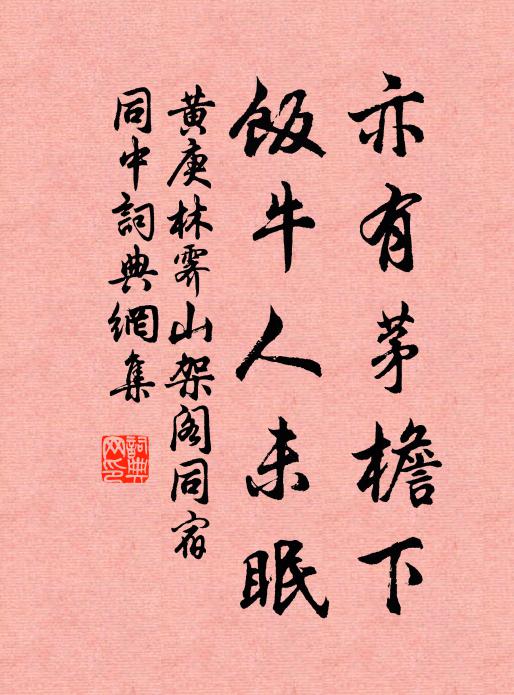 亦有茅檐下
飯牛人未眠
黃庚林霽山架閣同宿
同中詞典網集
詞典网印